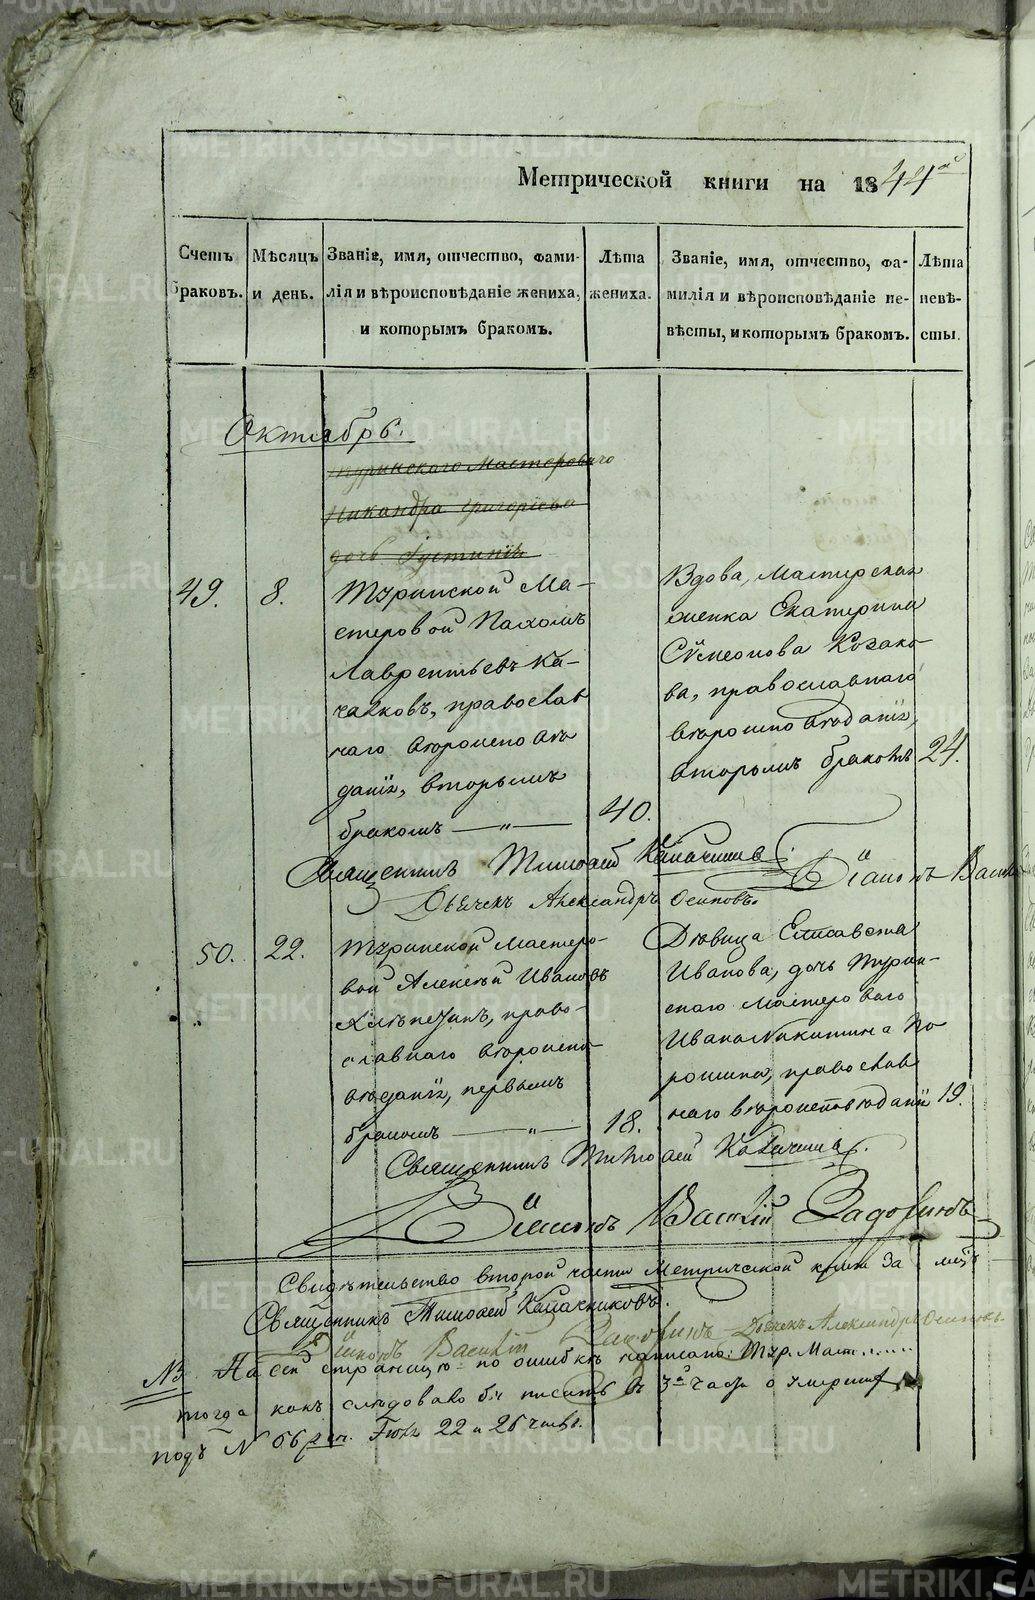 Метрической книги на 1844й
Счетъ браковъ.
Мѣсяцъ и день.
Званіе, имя, отчество, фами-
лія и вѣроисповѣданіе жениха,
и которымъ бракомъ.
Лѣта
жениха.
Званіе, имя, отчество, фа-
милія и вѣроисповѣданіе не-
вѣсты, и которымъ бракомъ.
Лѣта
невѣ-
сты.
Октябрь.
Туринскаго Мастероваго
Никандра Григорьева
дочь Iустинія
49. 8.
Туринской Ма-
стеровой Пахомъ
Лаврентьевъ Ка-
чалковъ, православ
наго вѣроисповѣ
данія, вторымъ
бракомъ — „ — 40.
Вдова, Мастерская
женка Екатерина
Сѵмеонова Козако-
ва, православнаго
вѣроисповѣданія,
вторымъ бракомъ 24.
Священникъ Тимофей
Діаконъ
Дьячекъ Александръ Осиповъ.
50. 22.
Туринской Мастеро-
вой Алексѣй Ивановъ
право-
славнаго вѣроиспо-
вѣданія, первымъ
бракомъ — „ — 18.
Дѣвица Елисавета
Иванова, дочь Турин-
скаго Мастероваго
Ивана Никитина По
рошина, православ
наго вѣроисповѣданія 19.
Священникъ Тимофей
Діаконъ Василій
Свидѣтельство второй части Метрической книги за мѣцъ
Священникъ Тимофей
Діаконъ Василій Дьячекъ Александръ Осиповъ.
NB. На сей страницѣ по ошибкѣ написано: Тур. Маст.......
тогда какъ слѣдовало бы писать въ 3й части о умершихъ
подъ N 66 22 и 26 чис.
METRIKI.GASO-URAL.RU